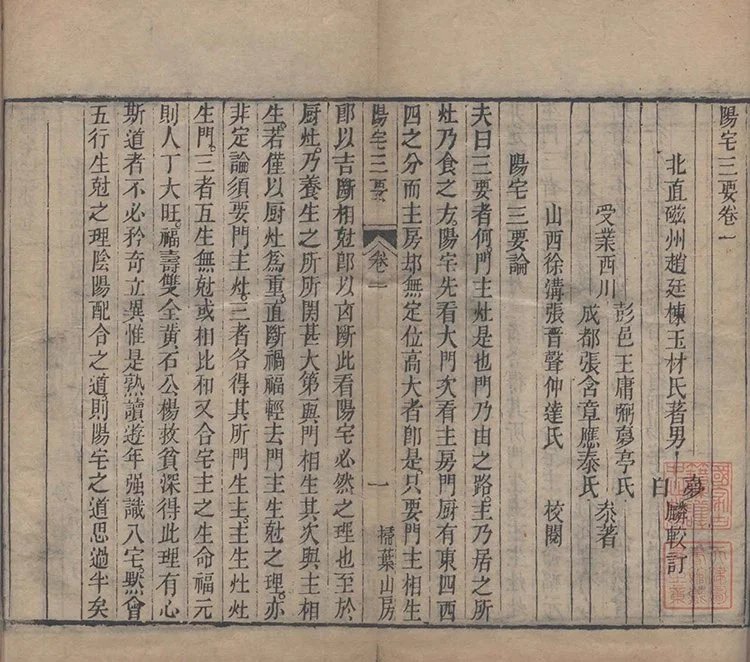 陽宅三要卷一
北直磁州趙廷棟玉材氏著男
夢
白
麟較訂
受業西川
彭邑王庸弼夢亭氏
成都張含章應泰氏
叅著
山西徐溝張晋聲仲達氏
校閱
陽宅三要論
夫曰三要者何門主灶是也門乃由之路主乃居之所
灶乃食之方陽宅先看大門次看主房門厨有東四西
四之分而主房却無定位高大者即是只要門主相生
陽宅三要
卷一
一
掃葉山房
郎以吉斷相尅郎以凶斷此看陽宅必然之理也至於
厨灶乃養生之所所関甚大第一與門相生其次與主相
生若僅以厨灶為重直斷禍福輕去門主生尅之理亦
非定論須要門主灶三者各得其所門生主主生灶灶
生門三者互生無尅或相比和又合宅主之生命福元
則人丁大旺福壽雙全黄石公楊救貧深得此理有心
斯道者不必矜奇立異惟是熟讀遊年强識八宅黙會
五行生尅之理陰陽配合之道則陽宅之道思過半矣